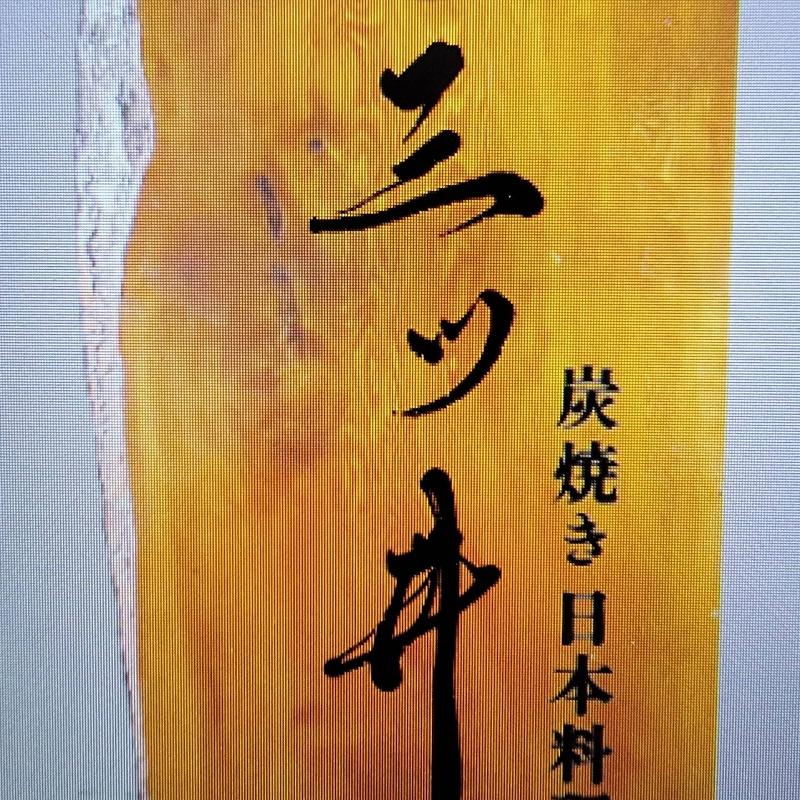 炭焼き 日本料
三ツ井